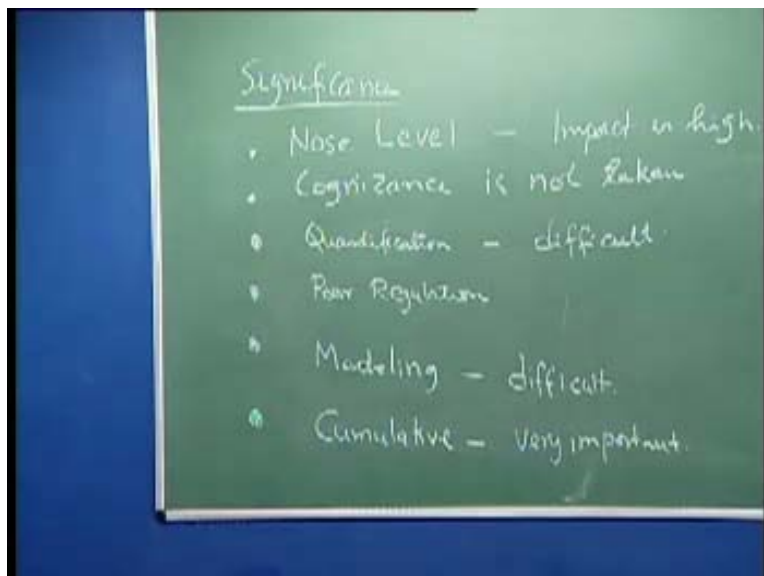 Significance
• Nose Level - Impact is high.
• Cognizance is not taken
• Quantification - difficult.
• Poor Regulation
• Modeling - difficult.
• Cumulative - very important.